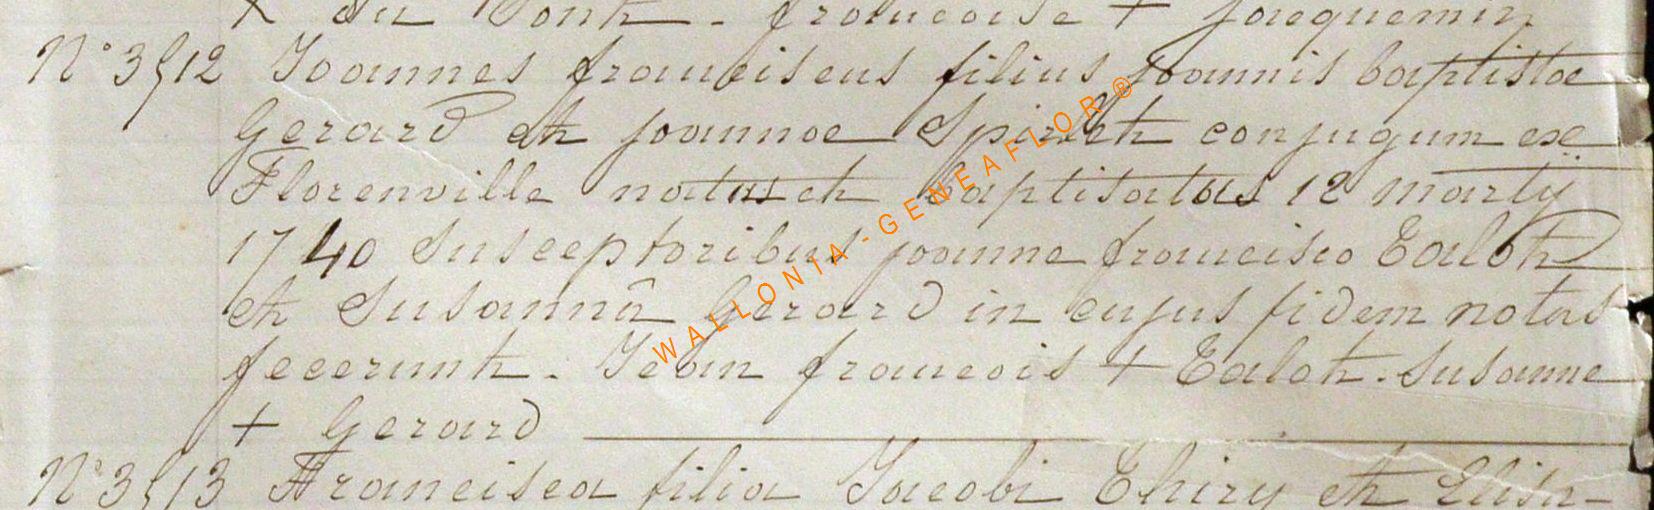 + du Pont - francoise + Jacquemin
N° 3512 Joannes franciscus filius joannis baptistae
Gerard et joannae Spirlet conjugum ex
Florenville natus et baptisatus 12 marty
1740 susceptoribus joanne francisco Talot
et Susannâ Gerard in cujus fidem notas
fecerunt - Jean francois + Talot - Susanne
+ Gerard
N° 3513 Francisca filia Jacobi Thiry et Elisa-
WALLONIA-GENEAFLOR®